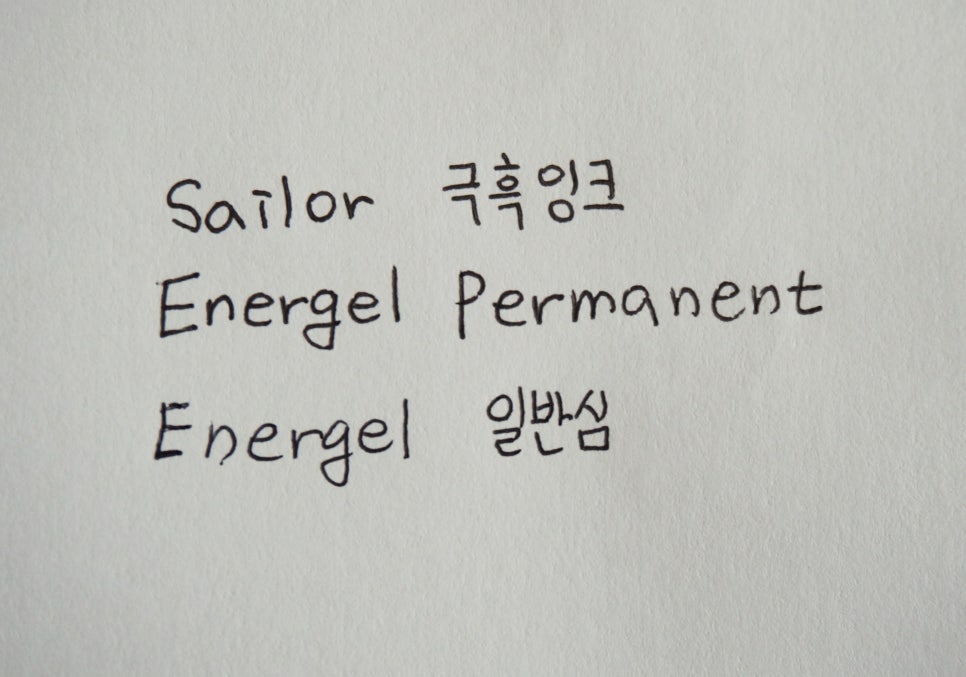 Sailor 극흑잉크
Energel Permanent
Energel 일반심